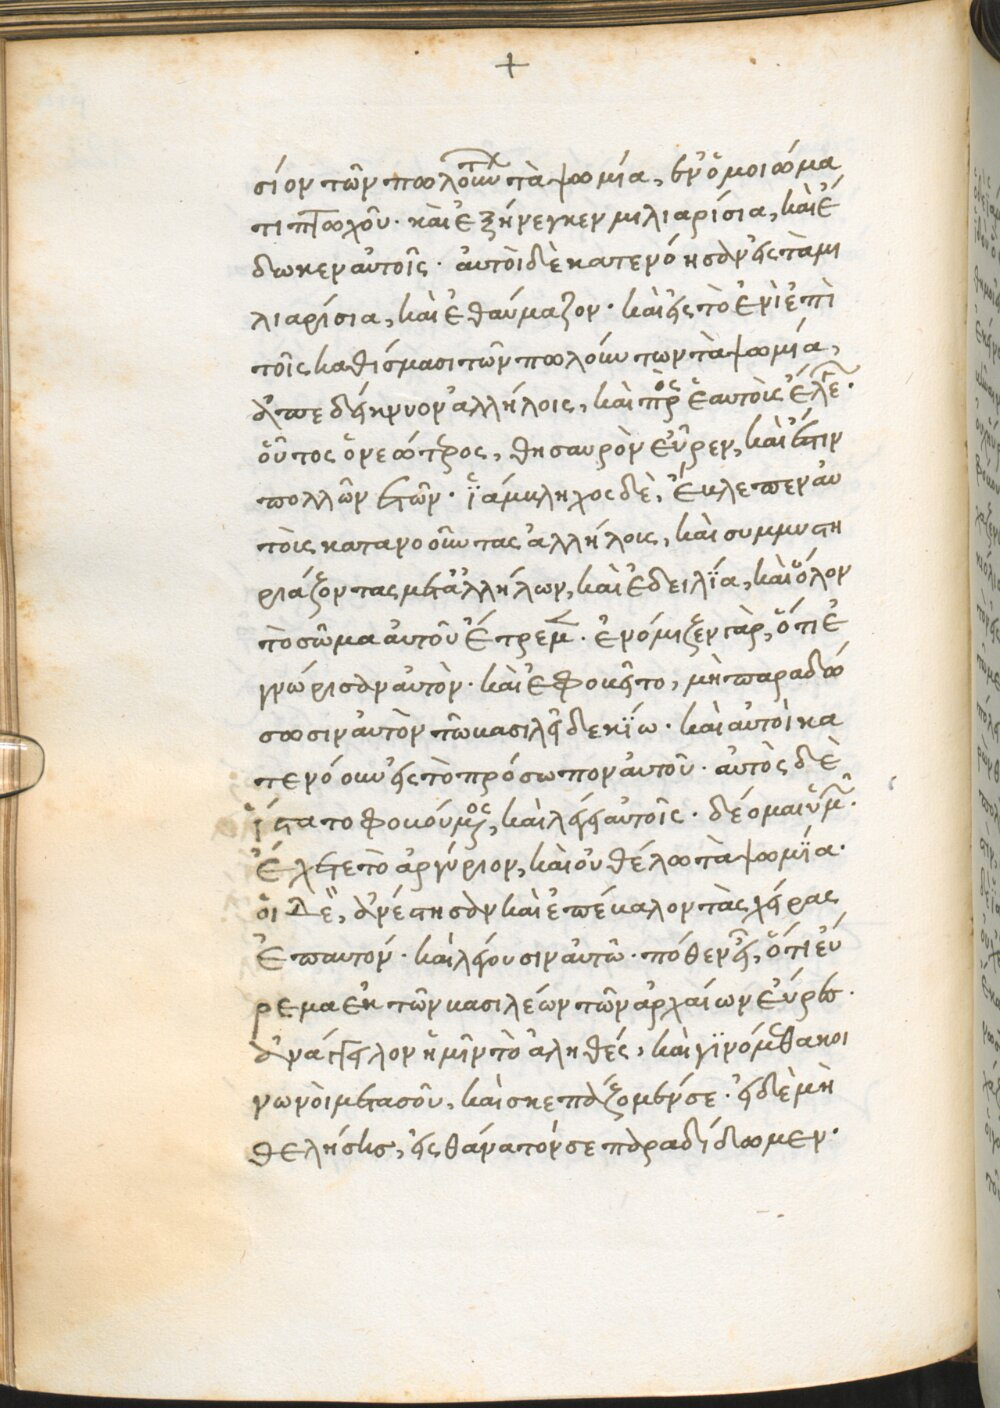 +
σίον τῶν πωλούντων τὰ ψωμία, ἐν ὁμοιώμα
τι πωλοῦ· καὶ ἐξήνεγκεν μιλιαρίσια, καὶ ἔ
δωκεν αὐτοῖς· αὐτοὶ δὲ κατενόησαν εἰς τὰ μι
λιαρίσια, καὶ ἐθαύμαζον· καὶ εἰς τὸ ἐνὶ ἐπὶ
τοῖς καθίσμασι τῶν πωλούντων τὰ ψωμία,
ἀπεδείκνυον ἀλλήλοις, καὶ πρὸς ἑαυτοὺς ἔλεγον·
οὗτος ὁ νεώτερος, θησαυρὸν εὗρεν, καὶ ἔστιν
πολλῶν ἐτῶν· ἰάμβληχος δὲ, ἔβλεπεν αὐ
τοὺς κατανοοῦντας ἀλλήλοις, καὶ συμμυστη
ριάζοντας μετἀλλήλων, καὶ ἐδειλία, καὶ ὅλον
τὸ σῶμα αὐτοῦ ἔτρεμεν· ἐνόμιζεν γὰρ, ὅτι ἐ
γνώρισαν αὐτὸν· καὶ ἐφοβεῖτο, μὴ παραδώ
σωσιν αὐτὸν τῶ βασιλεῖ δεκίω· καὶ αὐτοὶ κα
τενόουν εἰς τὸ πρόσωπον αὐτοῦ· αὐτὸς δὲ
ἵστατο φοβούμενος, καὶ λέγει αὐτοῖς· δέομαι ὑμῶν·
ἔχετε τὸ ἀργύριον, καὶ οὐ θέλω τὰ ψωμία·
οἱ δὲ, ἀνέστησαν καὶ ἐπέβαλον τὰς χεῖρας
ἐπαυτόν· καὶ λέγουσιν αὐτῶ· πόθεν εἶ, ὅτι εὕ
ρεμα ἐκ τῶν βασιλέων τῶν ἀρχαίων εὗρες·
ἀνάγγειλον ἡμῖν τὸ ἀληθές, καὶ γινόμεθα κοι
νωνοὶ μετασοῦ, καὶ σκεπάζομέν σε· εἰ δὲ μὴ
θελήσεις, εἰς θάνατόν σε παραδίδωμεν·